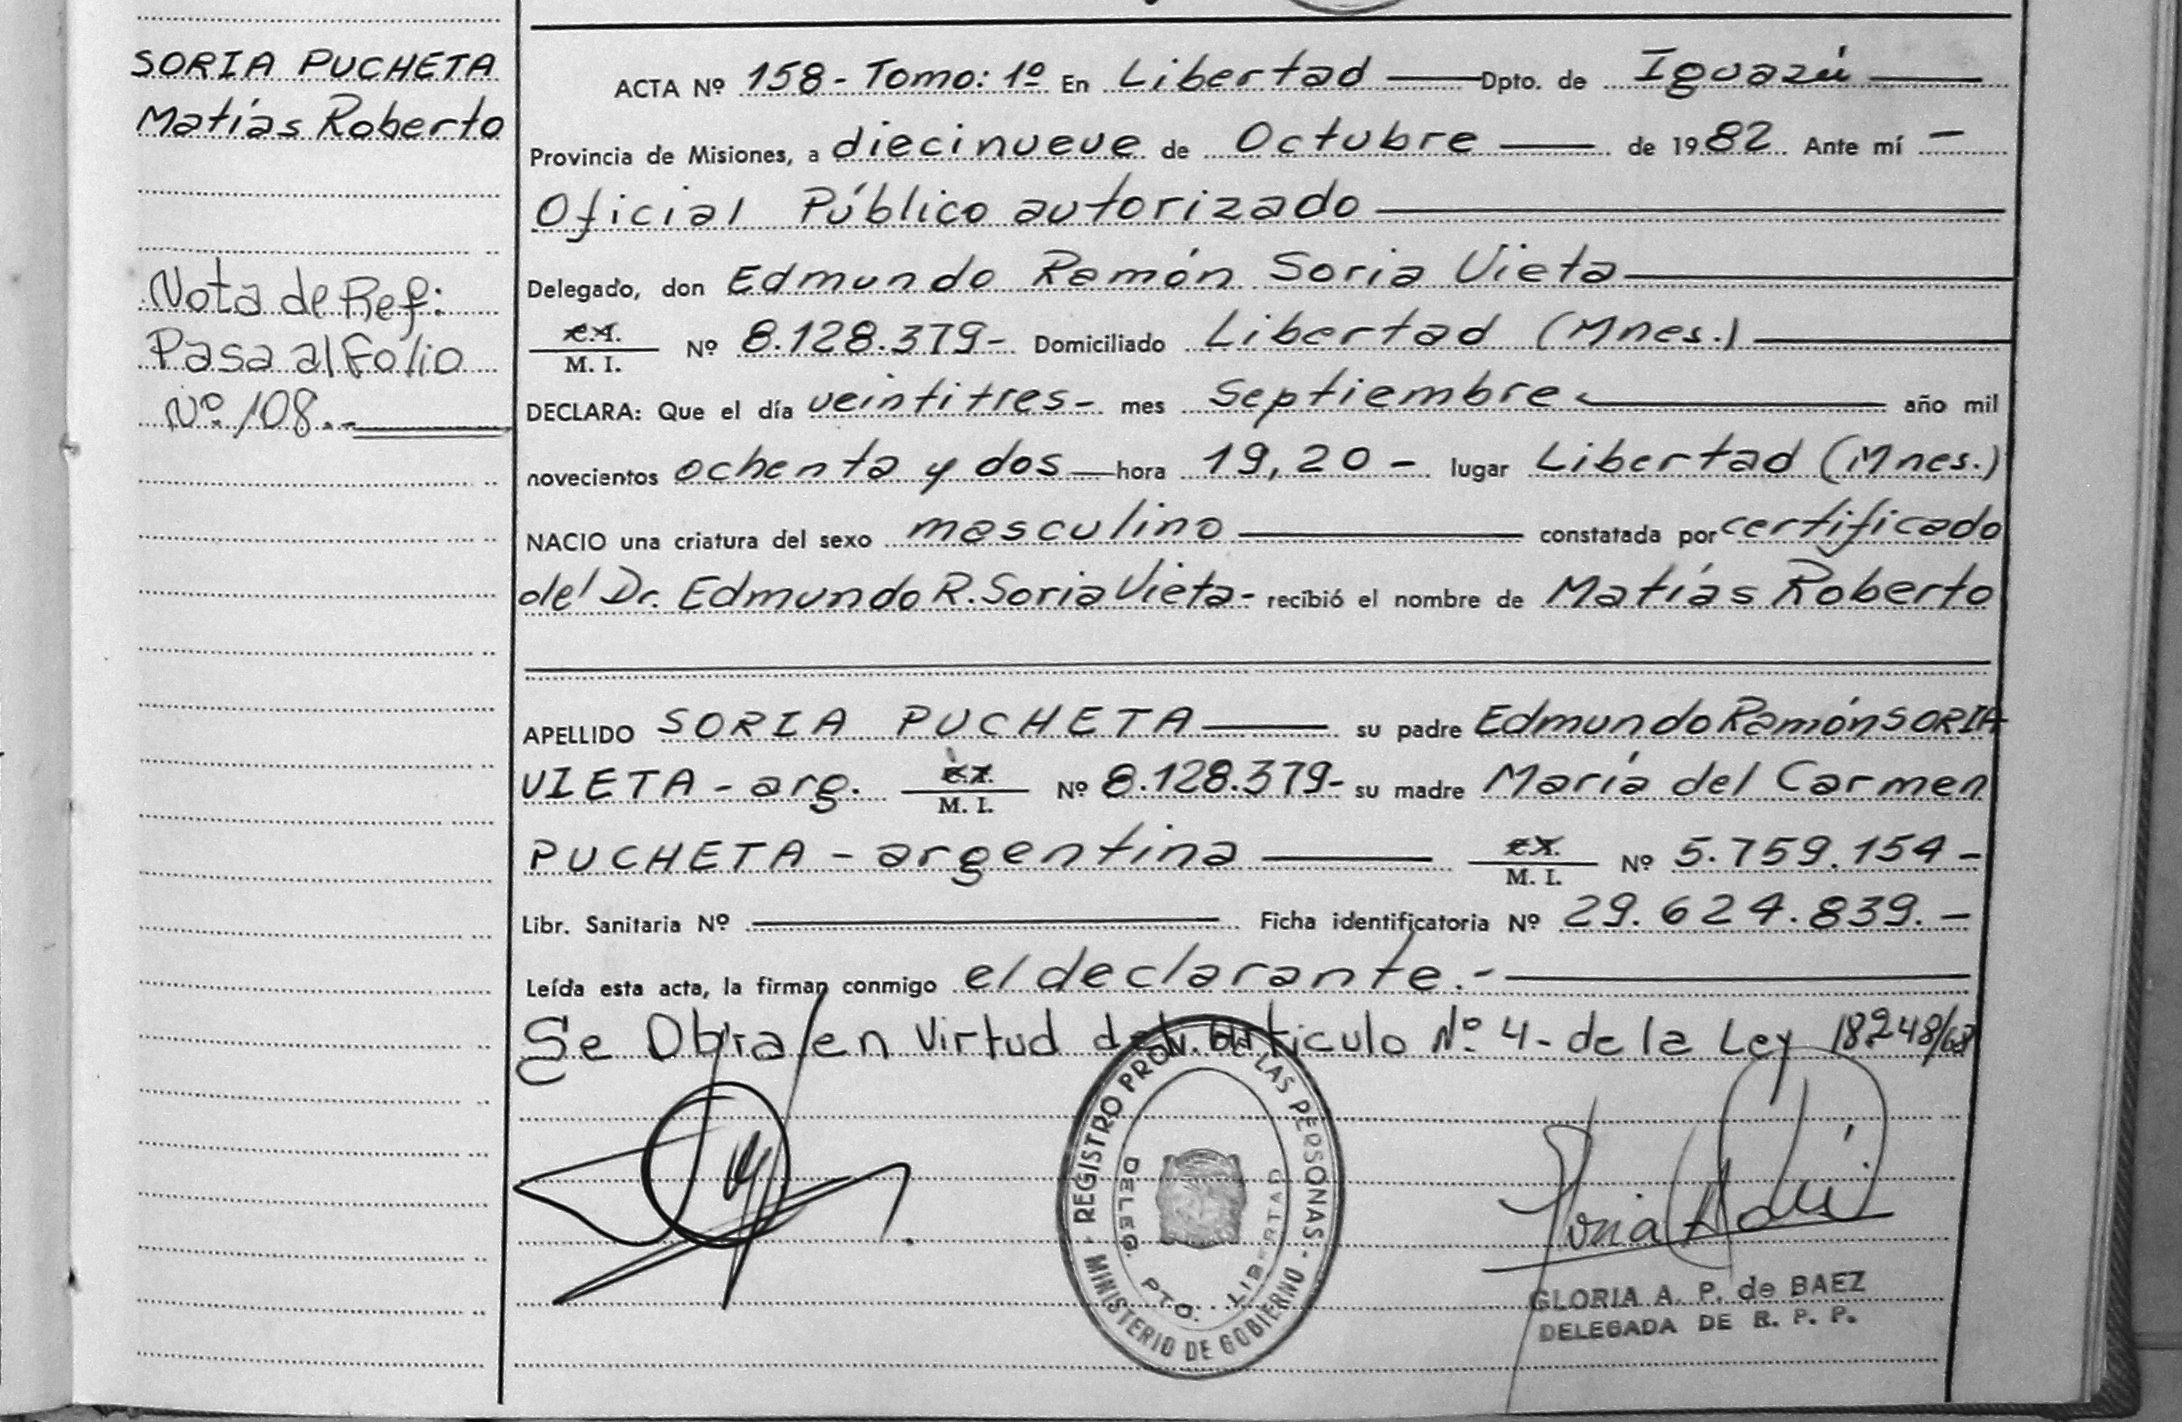 SORIA PUCHETA
Matías Roberto
Nota de Ref:
Pasa al Folio
Nº 108.-
ACTA Nº 158- Tomo: 1º En Libertad Dpto. de Iguazú
Provincia de Misiones, a diecinueve de Octubre de 1982 Ante mí -
Oficial Público autorizado
Delegado, don Edmundo Ramón Soria Vieta
M. I. Nº 8.128.379- Domiciliado Libertad (Mnes.)
DECLARA: Que el día veintitres- mes Septiembre año mil
novecientos ochenta y dos hora 19,20- lugar Libertad (Mnes.)
NACIO una criatura del sexo masculino constatada por certificado
del Dr. Edmundo R. Soria Vieta- recibió el nombre de Matías Roberto
APELLIDO SORIA PUCHETA su padre Edmundo Ramón SORIA
VIETA - arg. M. I. Nº 8.128.379- su madre María del Carmen
PUCHETA - argentina M. I. Nº 5.759.154-
Libr. Sanitaria Nº Ficha identificatoria Nº 29.624.839.-
Leída esta acta, la firman conmigo el declarante.-
Se Obra en Virtud del Articulo Nº 4- de la Ley 18248/69
REGISTRO PROV. DE LAS PERSONAS
MINISTERIO DE GOBIERNO
DELEG. PTO. LIBERTAD
GLORIA A. P. de BAEZ
DELEGADA DE R. P. P.